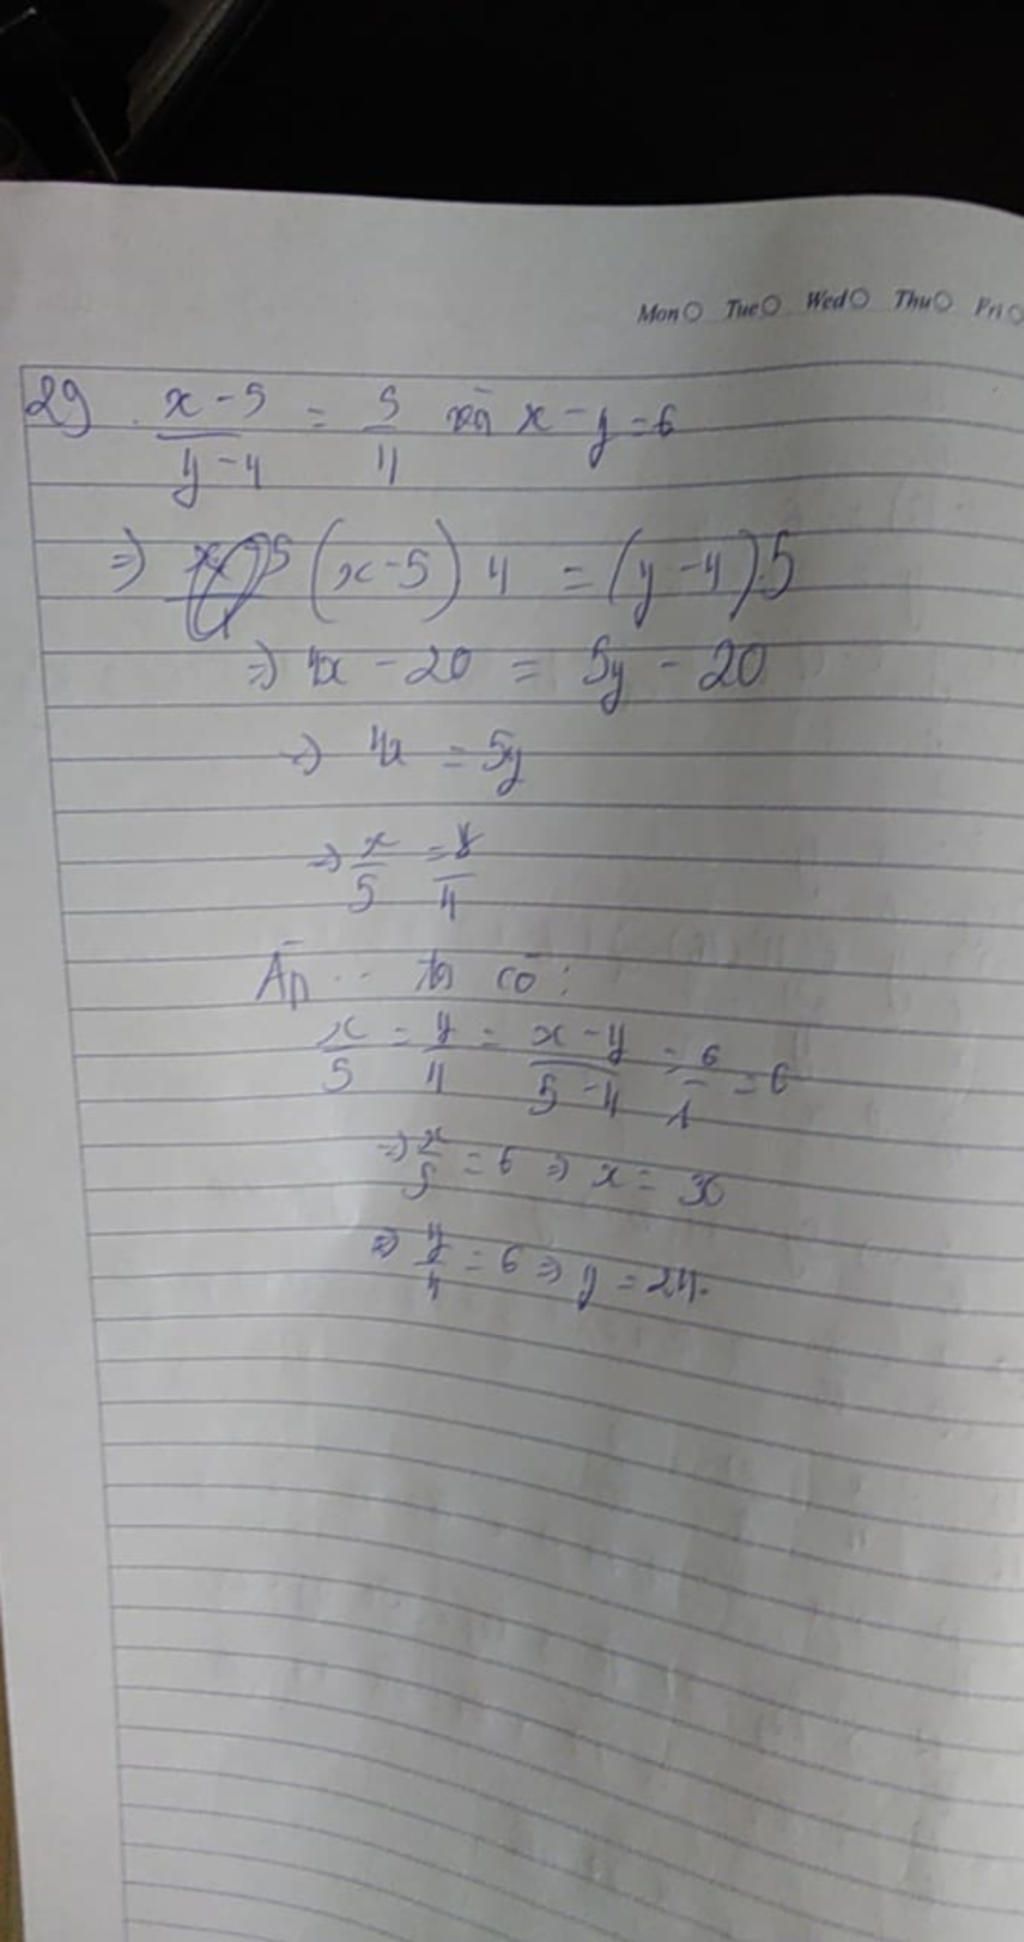 Mon Tue Wed Thu Pri
29. x-5/y-4 = 5/4 và x-y=6
=> (x-5) 4 = (y-4).5
=> 4x - 20 = 5y - 20
=> 4x = 5y
=> x/5 = y/4
Áp ... ta có:
x/5 = y/4 = x-y/5-4 = 6/1 = 6
=> x/5 = 6 => x = 30
=> y/4 = 6 => y = 24.